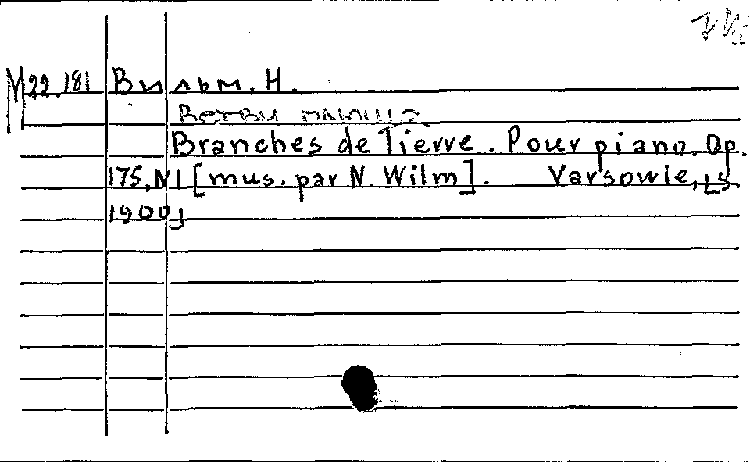 M 22.181 Вильм. Н.
Ветви
Branches de Tierre. Pour piano. Op.
175, N1 [mus. par N. Wilm]. Varsowie, LS.
1900]